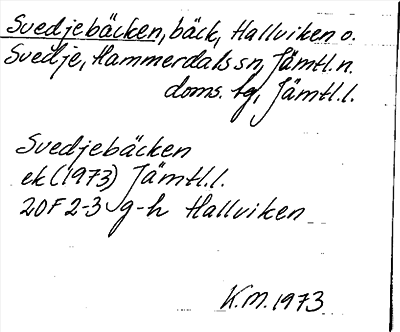 Svedjebäcken, bäck, Hallviken o.
Svedje, Hammerdals sn, Jämtl. n.
doms. tg, Jämtl. l.
Svedjebäcken
ek (1973) Jämtl. l.
20F 2-3 g-h Hallviken
K.M. 1973